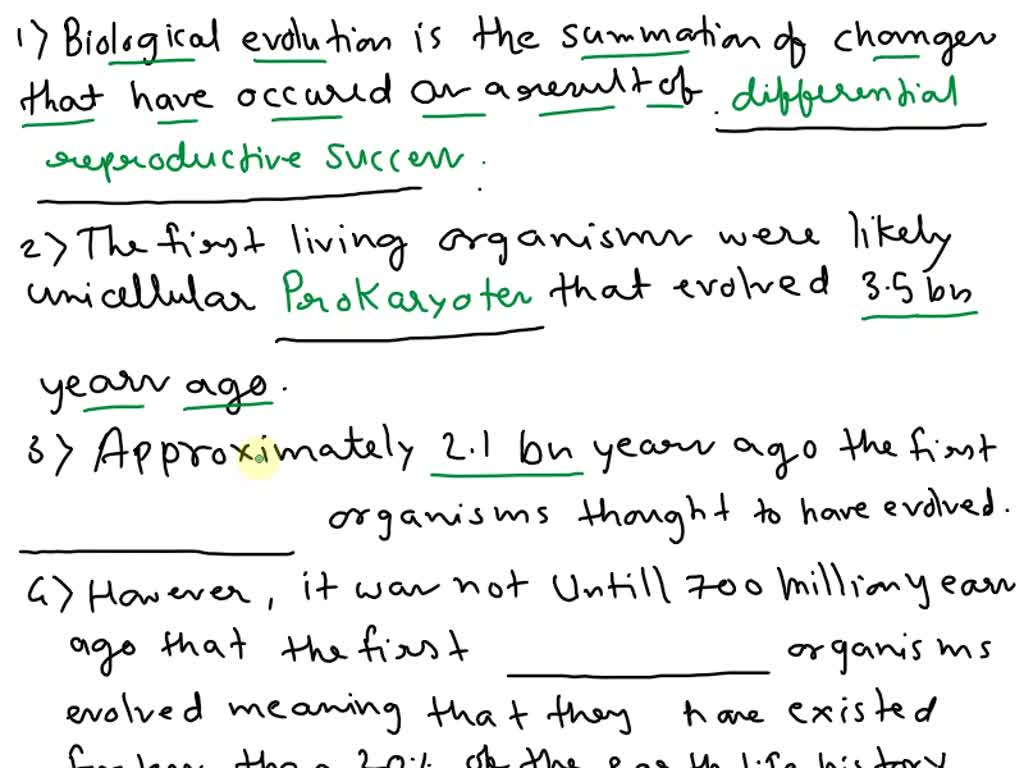 1) Biological evolution is the summation of changes
that have occured as a result of differential
reproductive success.
2) The first living organisms were likely
unicellular Prokaryotes that evolved 3.5 bn
years ago.
3) Approximately 2.1 bn years ago the first
organisms thought to have evolved.
4) However, it was not Untill 700 million years
ago that the first organisms
evolved meaning that they have existed
for less than 20% of the earth life history